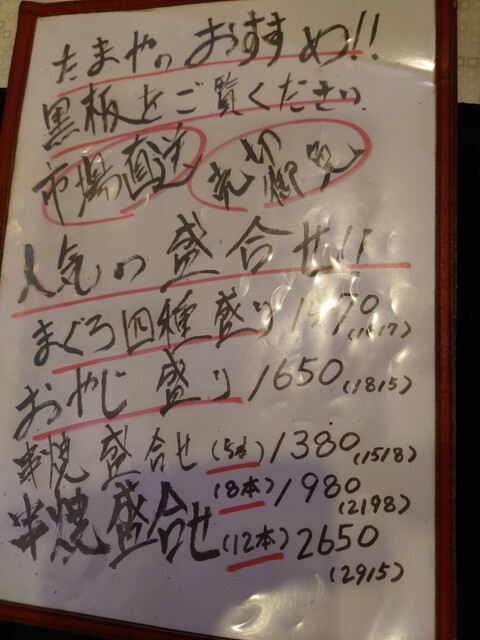 たまやのおすすめ!!
黒板をご覧ください
市場直送 売切御免
人気の盛合せ!!
まぐろ四種盛り 1470 (1617)
おやじ盛り 1650 (1815)
串焼盛合せ (5本) 1380 (1518)
(8本) 1980 (2198)
串焼盛合せ (12本) 2650 (2915)